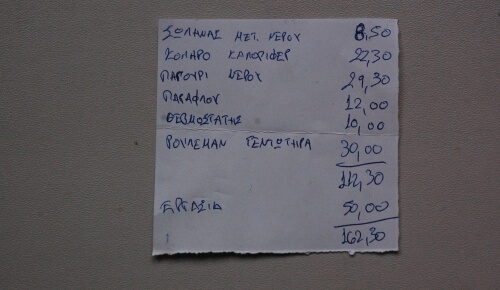 ΣΩΛΗΝΑΣ ΜΕΤ. ΝΕΡΟΥ 8,50
ΚΟΛΑΡΟ ΚΑΛΟΡΙΦΕΡ 22,30
ΠΑΓΟΥΡΙ ΝΕΡΟΥ 29,30
ΠΑΡΑΦΛΟΥ 12,00
ΘΕΡΜΟΣΤΑΤΗΣ 10,00
ΡΟΥΛΕΜΑΝ ΤΕΝΤΩΤΗΡΑ 30,00
112,30
ΕΡΓΑΣΙΑ 50,00
162,30